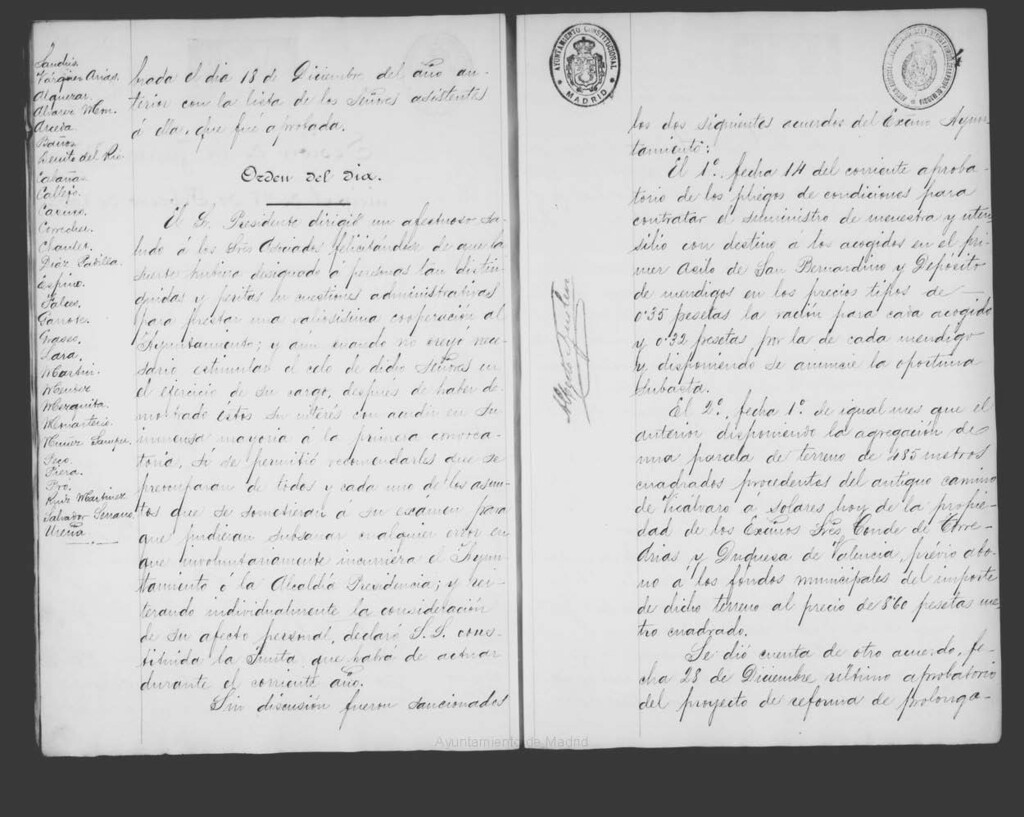 Sanchis
Vázquez Arias.
Alquerar.
Alvarez Mon.
Arcota
Baños
Benito del Rio
Calaña
Callejo.
Cerredua.
Chautes.
Diaz Padilla.
Espino.
Falcó.
Garrote.
Grasso.
Lara.
Martin.
Mezquita.
Monasterio.
Nuñez Samper.
Peco.
Piera.
Pro.
Ruiz Martinez
Salvador
Ureña
brada el dia 18 de Diciembre del año an-
terior con la lista de los Señores asistentes
á ella, que fué aprobada.
Orden del dia.
El Sr. Presidente dirigió un afectuoso sa-
ludo á los Sres Asociados felicitándose de que la
suerte hubiera designado á personas tan distin-
guidas y peritas en cuestiones administrativas
para prestar una valiosisima cooperación al
Ayuntamiento; y aun cuando no creyó nece-
sario estimular el celo de dicho Señores en
el ejercicio de su cargo, despues de haber de-
mostrado éstos su interés con acudir en su
inmensa mayoria á la primera convoca-
toria, si se permitió recomendarles que se
preocuparan de todos y cada uno de los asun-
tos que se sometieran á su exámen para
que pudieran subsanar cualquier error en
que involuntariamente incurriera el Ayun-
tamiento ó la Alcaldia Presidencia; y rei-
terando individualmente la consideración
de su afecto personal, declaró S.S. cons-
tituida la Junta que habá de actuar
durante el corriente año.
Sin discusión fueron sancionados
AYUNTAMIENTO CONSTITUCIONAL
MADRID
los dos siguientes acuerdos del Excmo Ayun-
tamiento:
El 1º, fecha 14 del corriente aproba-
torio de los pliegos de condiciones para
contratar el suministro de menestra y uten-
silio con destino á los acogidos en el pri-
mer Asilo de San Bernardino y Depósito
de mendigos en los precios tipos de
0'35 pesetas la ración para cada acogido
y 0'32 pesetas por la de cada mendigo
y disponiendo se anuncie la oportuna
subasta.
El 2º, fecha 1º de igual mes que el
anterior disponiendo la agregación de
una parcela de terreno de 485 metros
cuadrados procedentes del antiguo camino
de Vicálvaro á solares hoy de la propie-
dad de los Excmos Sres Conde de Torre-
Arias y Duquesa de Valencia, previo abo-
no á los fondos municipales del importe
de dicho terreno al precio de 8'60 pesetas me-
tro cuadrado.
Se dió cuenta de otro acuerdo, fe-
cha 28 de Diciembre último aprobatorio
del proyecto de reforma de prolonga-
Ayuntamiento de Madrid